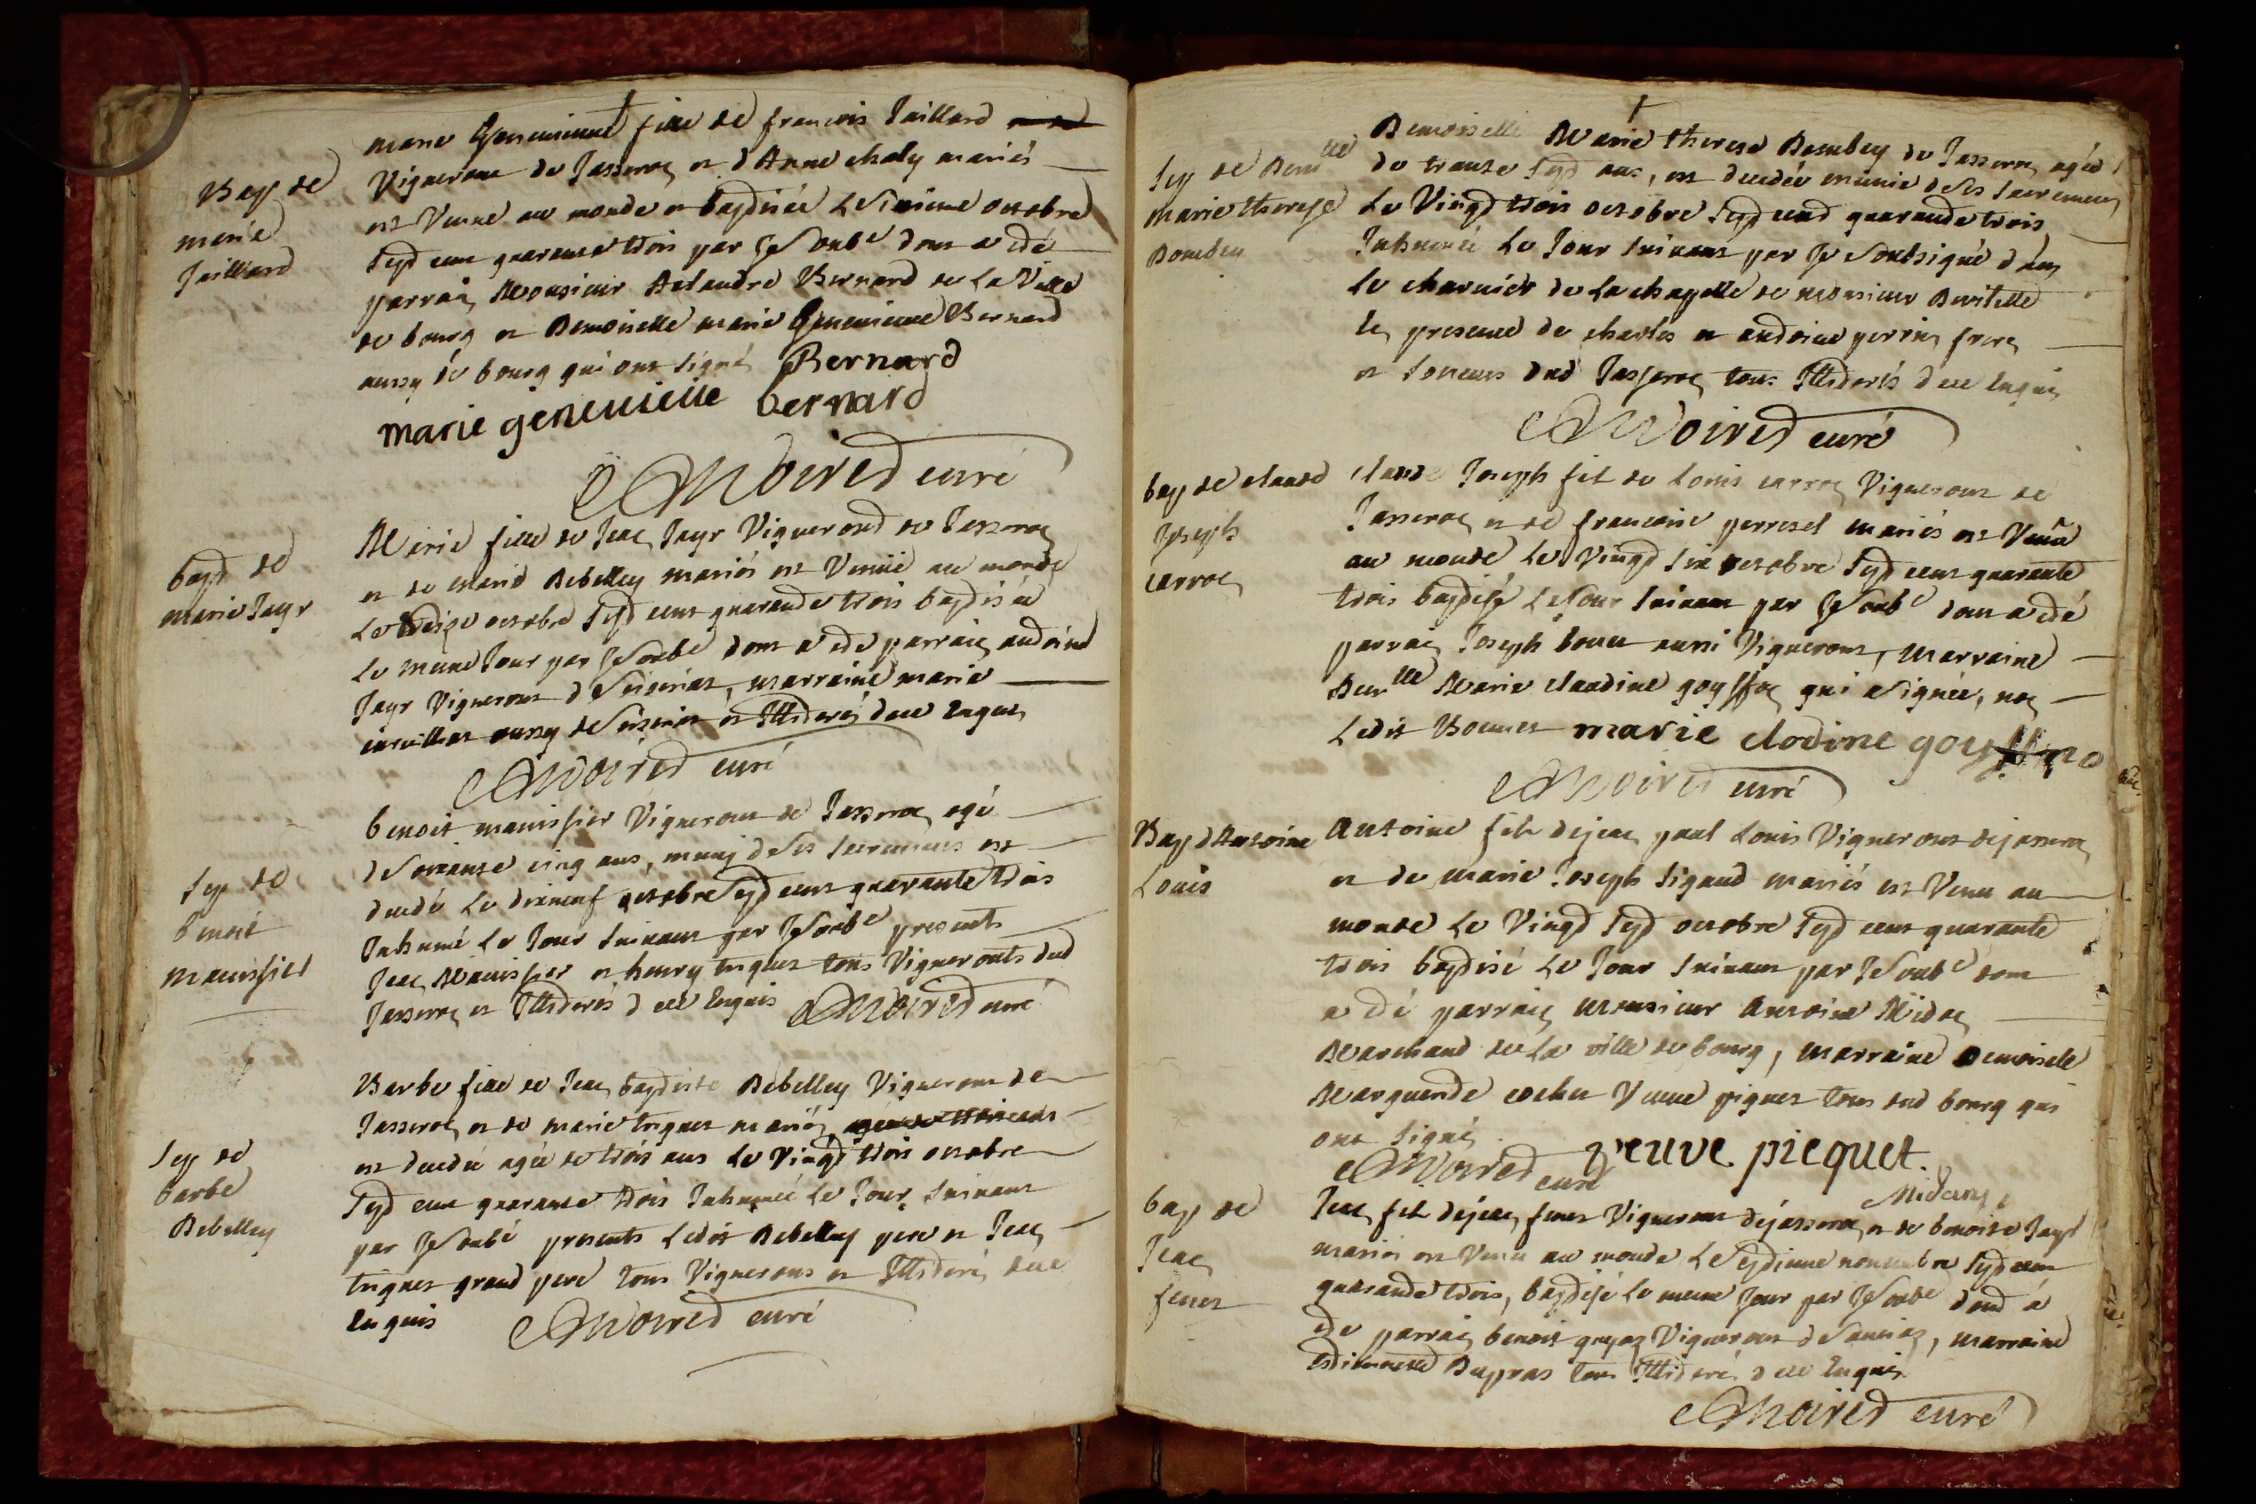 Bap de
marie
Jaillard
marie Genevieve fille de francois Jaillard
Vigneront de Jasseron et d'Anne chaly mariés
est Venue au monde et baptisée Le sixieme octobre
sept cent quarante trois par Je Soubé dont a eté
parrain Monsieur Alexandre Bernard de La Ville
de bourg et Demoiselle marie Genevieve Bernard
aussy de bourg qui ont signé Bernard
marie genevieve bernard
Moiret curé
bapt de
marie Jayr
Marie fille de Jean Jayr Vigneront de Jasseron
et de marie Debelley mariés est Venüe au monde
Le octobre sept cent quarante trois baptisée
Le meme Jour par Je Soubé dont a eté parrain antoine
Jayr Vigneront de Seiseriat, marraine marie
aussy de Seiseriat et Illiterés de ce Enquis
Moiret curé
Sep de
benoit
maurissier
benoit maurissier Vigneront de Jasseron agé
de soixante cinq ans, muny de ses sacremens est
decedé Le dixneuf octobre sept cent quarante trois
Inhumé Le Jour suivant par Je Soubé presents
Jean Maurissier et henry triquet tous Vigneronts dud
Jasseron et Illiterés de ce Enquis Moiret curé
Sep de
barbe
Debelley
Barbe fille de Jean baptiste Debelley Vigneront de
Jasseron et de marie triquet mariés
est decedée agée de trois ans Le Vingt trois octobre
sept cent quarante trois Inhumée Le Jour suivant
par Je Soubé presents Ledit Debelley pere et Jean
triquet grand pere tous Vignerons et Illiterés de ce
Enquis Moiret curé
Sep de Demlle
marie therese
Dombey
Demoiselle Marie therese Dombey de Jasseron agée
de trente sept ans, est decedée munie de ses sacremens
Le Vingt trois octobre sept cent quarante trois
Inhumée Le Jour suivant par Je Soubsigné dans
Le charnier de La chapelle de monsieur
En presence de charles et antoine perrin freres
et soneurs dud Jasseron tous Illiterés de ce Enquis
Moiret curé
bap de claude
Joseph
carron
claude Joseph fil de Louis carron Vigneront de
Jasseron et de francoise perrozet mariés est Venu
au monde Le Vingt six octobre sept cent quarante
trois baptisé Le Jour suivant par Je Soubé dont a eté
parrain Joseph aussi Vigneront, marraine
Demlle Marie claudine goyffon qui a signée, non
Ledit marie clodine
Moiret curé
Bap d'Antoine
Louis
Antoine fils de jean paul Louis Vigneront de jasseron
et de marie Joseph sigaud mariés est Venu au
monde Le Vingt sept octobre sept cent quarante
trois baptisé Le Jour suivant par Je Soubé dont
a eté parrain monsieur Antoine Midan
Marchand de La ville de bourg, marraine Demoiselle
Marguerite veuve piquet tous dud bourg qui
ont signé
Moiret curé veuve picquet.
Midan
bap de
Jean
feret
Jean fil de jean feret Vigneront de jasseron et de benoite Jayr
mariés est Venu au monde Le septieme novembre sept cent
quarante trois, baptisé Le meme Jour par Je Soubé dont a
eté parrain benoit Vigneront de Sanciat, marraine
Dupras tous Illiterés de ce Enquis
Moiret curé